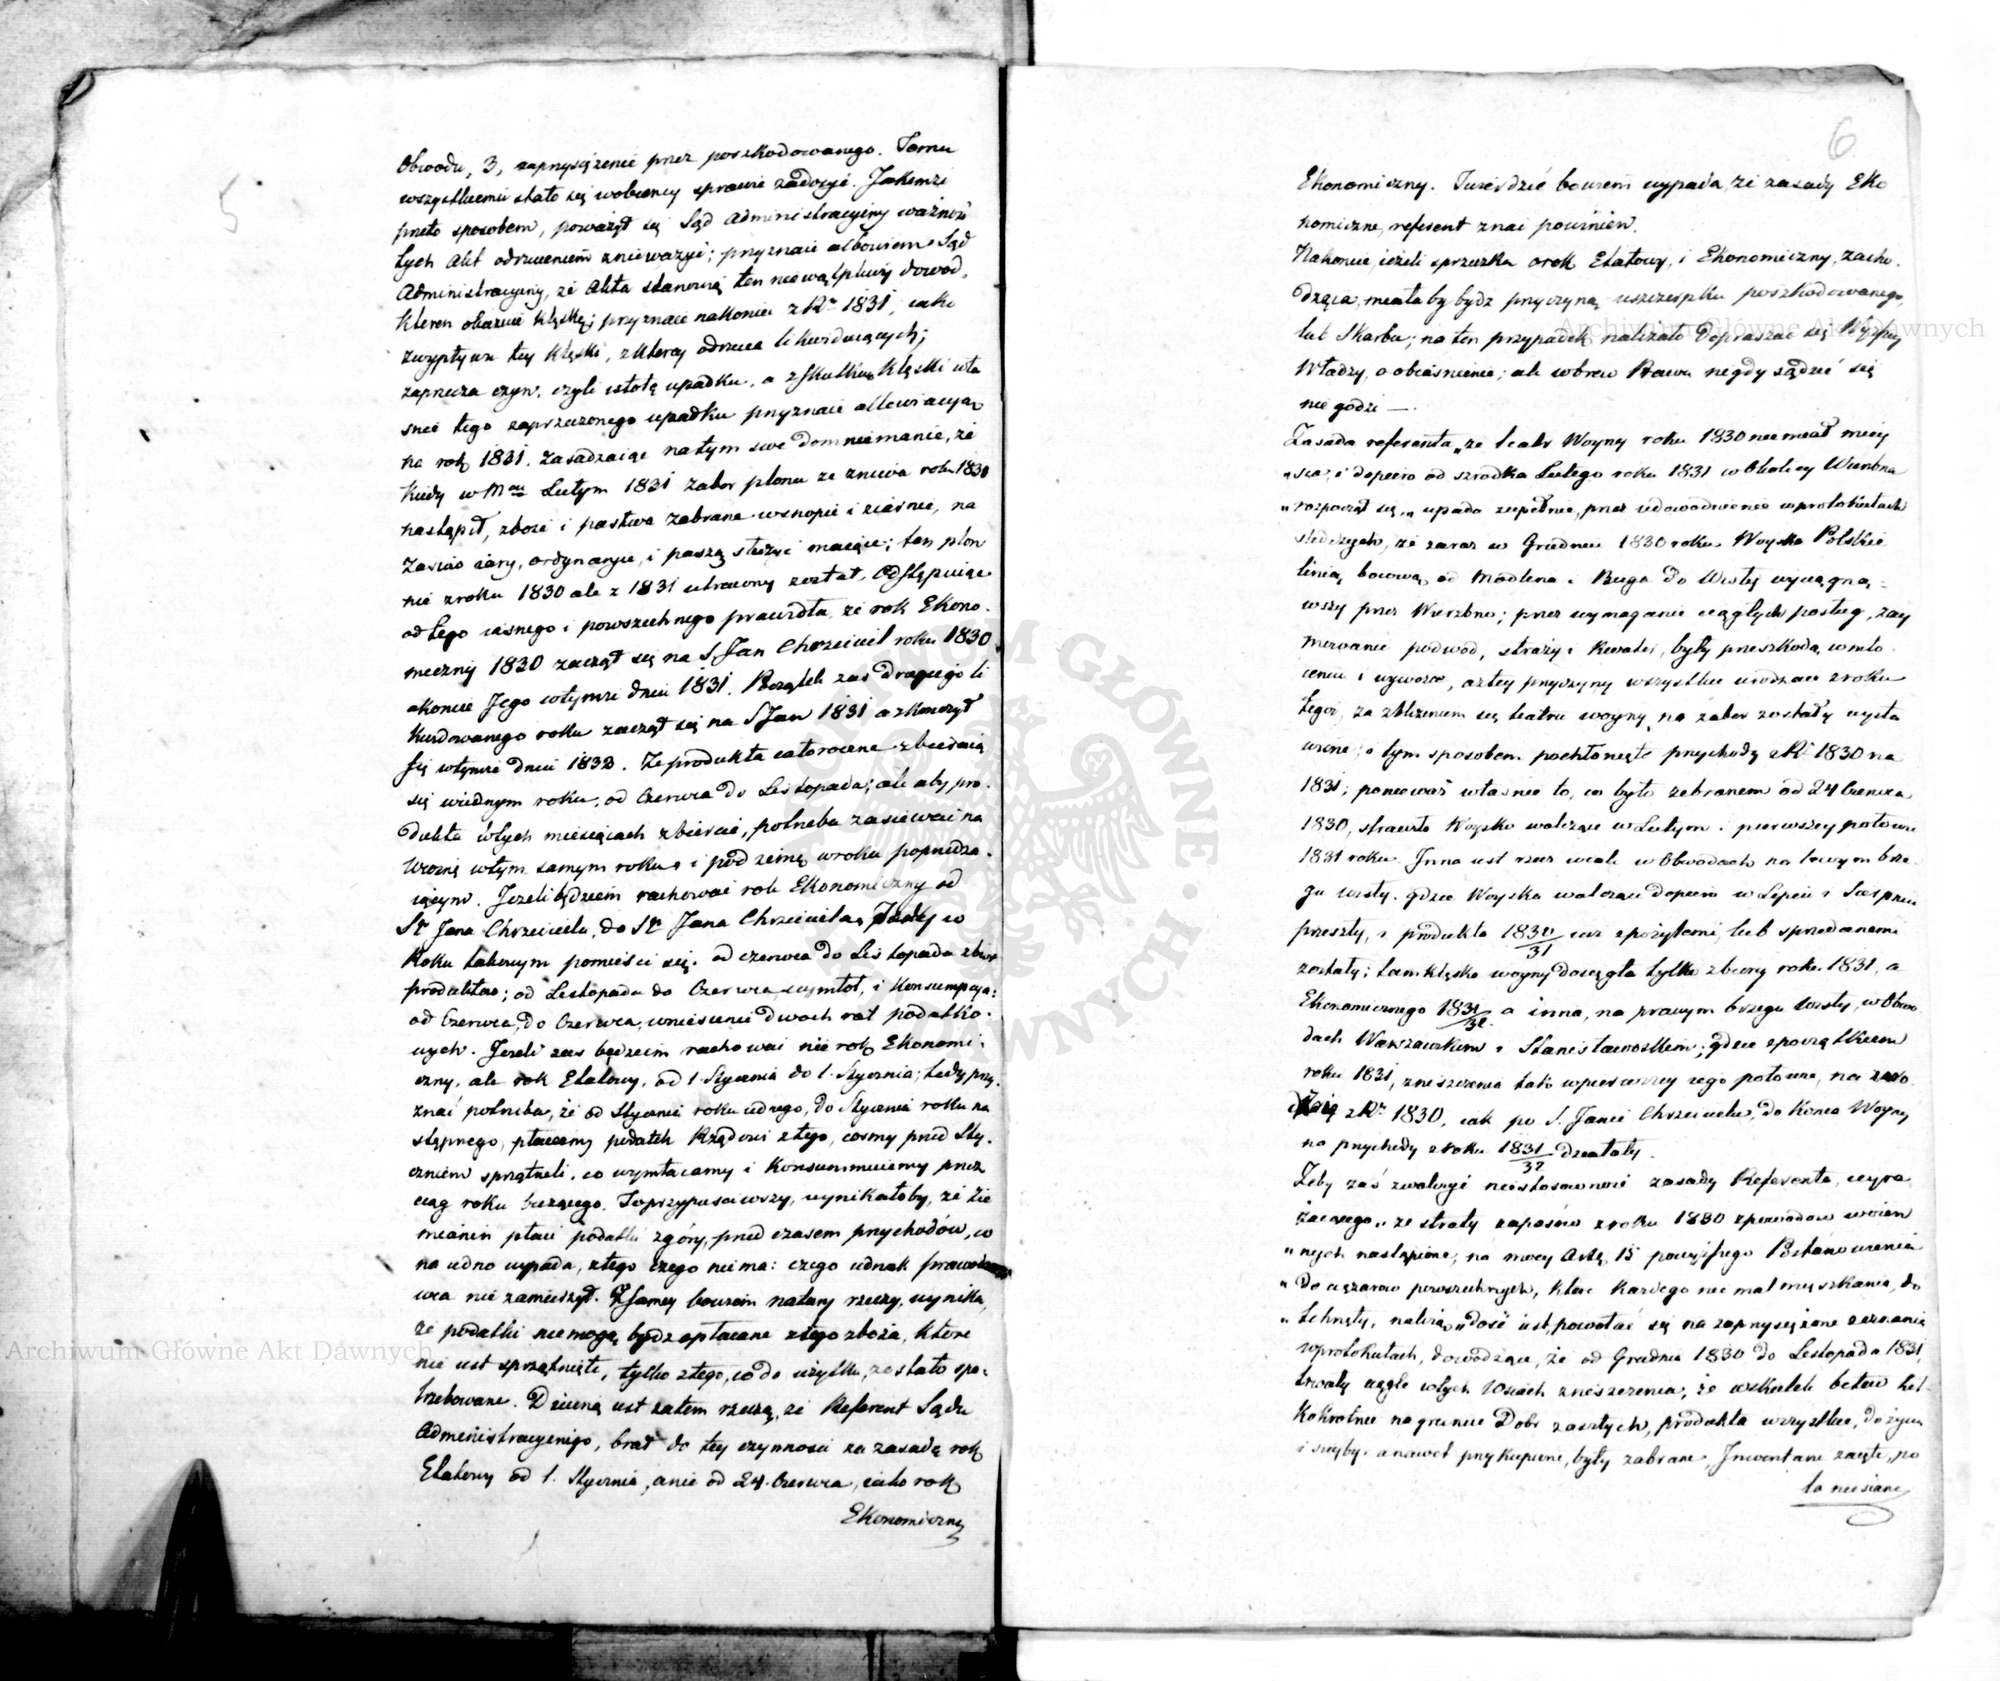 5
Obwodu, 3, zaprzysiężenie przez poszkodowanego. Temu
wszystkiemu stało się wobecney sprawie zadosyć. Jakimże
przeto sposobem, poważył się Sąd Administracyiny ważność
tych Akt odrzuceniem znieważyć; przyznaie albowiem Sąd
Administracyiny, że Akta stanowią ten niewątpliwy dowod,
kteren okazuie klęskę; przyznaie nakoniec z Ru 1831, iako
zwypływu tey klęski, z którey odrzuca likwiduiących;
zaprzecza czyn, czyli istotę upadku, a z skutków klęski wła
snie tego zaprzeczonego upadku przyznaie allewiacyą
na rok 1831. Zasadzaiąc natym swe domniemanie, że
kiedy w Mcu Lutym 1831 zabor plonu ze zniwa roku 1830
nastąpił, zboże i pastwa zabrane wsnopie i ziarnie, na
zasiew iary, ordynarye, i paszą służyć maiące; ten plon
nie zroku 1830 ale z 1831 utracony został. Odstępuiąc
od tego iasnego i powszechnego prawidła, że rok Ekono-
miczny 1830 zaczął się na S. Jan Chrzciciel roku 1830
akoniec Jego wtymże dniu 1831. Początek zas drugiego li
kwidowanego roku zaczął się na S Jan 1831 a skonczył
się wtymże dniu 1832. Ze produkta całoroczne zbieraią
się wiednym roku, od Czerwca do Listopada; ale aby pro-
dukta wtych miesiącach zbierać, potrzeba zasiewać na
wiosnę wtym samym roku i pod zimę wroku poprzedza-
iącym. Jeżeli będziem rachować rok Ekonomiczny od
So Jana Chrzciciela, do So Jana Chrzciciela, Tedy w
Roku takowym pomieści się. od czerwca do Listopada zbior
produktów; od Listopada do Czerwca, wymłot, i konsumpcya:
od Czerwca, do Czerwca, wniesienie dwoch rat podatko-
wych. Jeżeli zas będziem rachować nie rok Ekonomi-
czny, ale rok Etatowy, od 1. Stycznia do 1. Stycznia; tedy przy-
znać potrzeba, że od Stycznia roku iednego, do Stycznia roku na
stępnego, płacemy podatek Rządowi ztego, cosmy przed Sty-
czniem sprzątneli, co wymłacamy i konsummuiemy przez
ciąg roku bieżącego. To przypuściwszy, wynikałoby, że Zie
mianin płaci podatki zgóry, przed czasem przychodów, co
na iedno wypada, ztego czego niema: czego iednak prawodaw
wca nie zamierzył. Z samey bowiem natury rzeczy, wynika,
że podatki niemogą bydz opłacane ztego zboża, które
nie iest sprzątnięte, tylko ztego, co do użytku, zostało spo-
trzebowane. Dziwną iest zatem rzeczą, że Referent Sądu
Administracyinego, brał do tey czynności za zasadę rok
Etatowy od 1. Stycznia, anie od 24. Czerwca, iako rok
Ekonomiczny
6
Ekonomiczny. Twierdzić bowiem wypada, że zasady Eko
nomiczne, referent znać powinien.
Nakoniec, ieżeli sprzeczka orok Etatowy, i Ekonomiczny, zacho-
dząca, miała by bydz przyczyną uszczerbku poszkodowanego,
lub Skarbu; na ten przypadek, należało dopraszać się Wyższey
Władzy, o obiasnienie; ale wbrew Prawu nigdy sądzić się
nie godzi —.
Zasada referenta „że teatr Woyny roku 1830 nie miał miey
„sca, i dopiero od szrodka Lutego roku 1831 w Okolicy Wierzbna
„rozpoczął się„ upada zupełnie, przez udowodnienie wprotokułach
sledczych, że zaraz w Grudniu 1830 roku Woyska Polskie
linią boiową od Modlina i Buga do Wisły wyciągną-
wszy przez Wierzbno; przez wymaganie ciągłych posług, zay
mowanie podwód, straży i kwater, były przeszkodą wmło-
ceniu i wywozie, aztey przyczyny wszystkie urodzaie zroku
tegoż, za zbliżeniem się teatru woyny, na zabor zostały wysta
wione; a tym sposobem pochłonięte przychody z Ru 1830 na
1831; ponieważ własnie to, co było zebranem od 24 Czerwca
1830, strawiło Woysko walczące w Lutym i pierwszey połowie
1831 roku. Inna iest rzecz wcale w Obwodach na lewym brze-
gu wisły, gdzie Woyska walczące dopiero w Lipcu i Sierpniu
przeszły, i produkta 1830/31 iuz spożytemi, lub sprzedanemi
zostały; tam klęska woyny dosięgła tylko zbiory roku 1831, a
Ekonomicznego 1831/32. a inna, na prawym brzegu wisły, w Obwo
dach Warszawskim i Stanisławowskim; gdzie spoczątkiem
roku 1831, zniszczenia tak wpierwszey iego połowie, na
z Ru 1830, iak po S. Janie Chrzcicielu, do konca Woyny
na przychody zroku 1831/32 działały.
Żeby zaś zwalczyć niestosowność zasady Referenta, wyra
żaiącego „że straty zapasów zroku 1830 spowodow woien
„nych nastąpione, na mocy Artu 15 powyższego Postanowienia
„do ciężarow powszechnych, które każdego niemal mieszkańca, do
„tchnęły, należą„ dość iest, powołać się na zaprzysiężone zeznania
wprotokułach, dowodzące, że od Grudnia 1830 do Listopada 1831,
trwały ciągle wtych Wsiach zniszczenia, że wskutek bitew kil-
kokrotnie na gruncie Dobr zaszłych, produkta wszystkie, do żywn
i siewby, anawet przykupione, były zabrane, Inwentarze zaięte, po
la niesiane